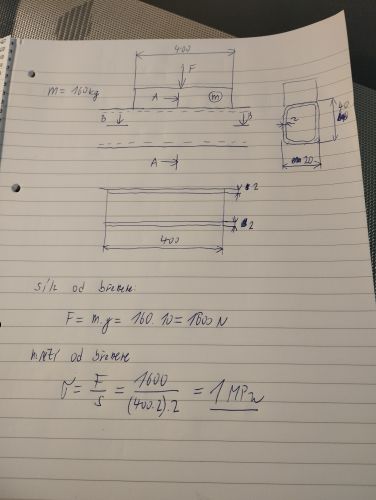 400
F
m = 160kg
A
m
B
B
40
2
20
A
2
2
400
síla od břemene:
F = m.g = 160.10 = 1600 N
napětí od břemene
σ = F/S = 1600/(400.2).2 = 1 MPa